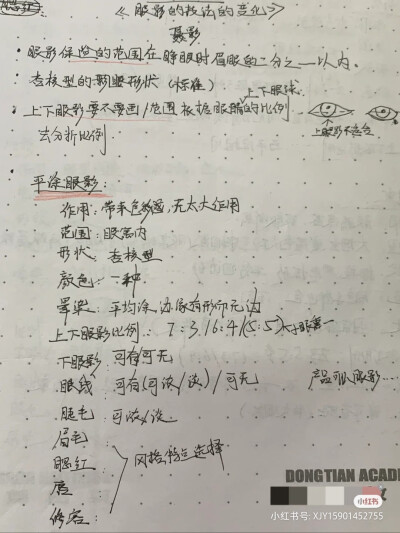 《眼影的技法的变化》
摄影
·眼影保守的范围在睁眼时眉眼的二分之一以内。
·杏核型的 眼形状(标准)
上下眼线
·上下眼影要不要画/范围根据眼睛的比例
去分析比例.
上眼影不适合
平涂眼影:
作用:带来色彩感,无太大作用
范围:眼窝内
形状:杏核型
颜色:一种
晕染:平均涂,边缘有形而无边
上下眼影比例:7:3/6:4/(5:5)大小眼
下眼影:可有可无
眼线:可有(可浓/淡)/可无
产品可以眼影……
睫毛:可浓/淡
眉毛:
腮红:
唇:
修容:
风格特点选择
DONGTIAN ACAD
小红书
小红书号: XJY15901452755